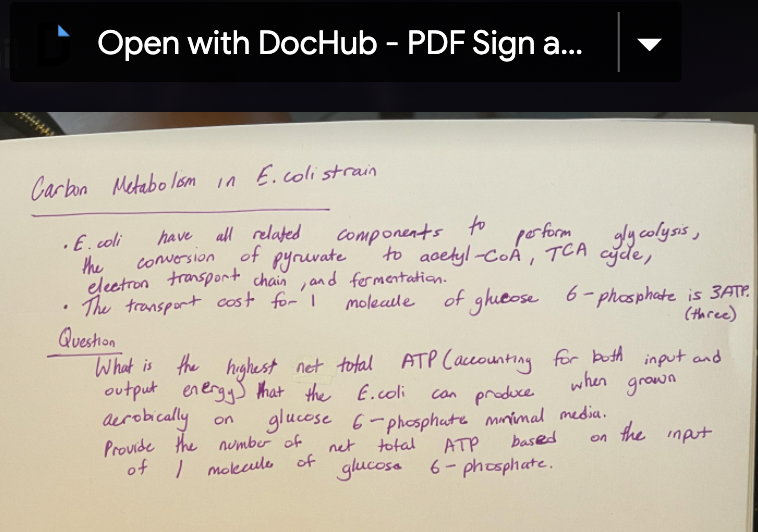 Open with DocHub - PDF Sign a...
Carbon Metabolism in E. coli strain
• E. coli have all related components to perform glycolysis,
the conversion of pyruvate to acetyl-CoA, TCA cycle,
electron transport chain, and fermentation.
• The transport cost for 1 molecule of glucose 6-phosphate is 3ATP.
(three)
Question
What is the highest net total ATP (accounting for both input and
output energy) that the E. coli can produce when grown
aerobically on glucose 6-phosphate minimal media.
Provide the number of net total ATP based on the input
of 1 molecule of glucose 6-phosphate.